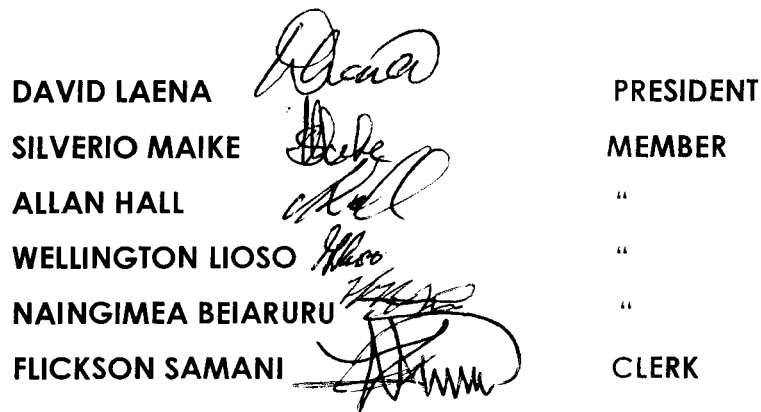 DAVID LAENA PRESIDENT
SILVERIO MAIKE MEMBER
ALLAN HALL “
WELLINGTON LIOSO “
NAINGIMEA BEIARURU “
FLICKSON SAMANI CLERK